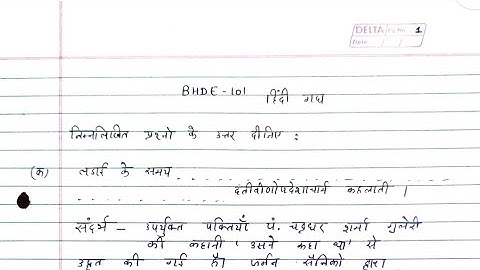 DELTA Pg No. 1
Date / /
BHDE-101 हिंदी गद्य
निम्नलिखित प्रश्नो के उत्तर दीजिए :
(क) लडाई के समय . . . . . . . . . . . . . . . .
. . . . . . . . . . दंतवीणोपदेशाचार्य कहलाती ।
संदर्भ – उपर्युक्त पंक्तियाँ पं. चन्द्रधर शर्मा गुलेरी
की कहानी 'उसने कहा था' से
उद्धृत की गई है। जर्मन सैनिको द्वारा